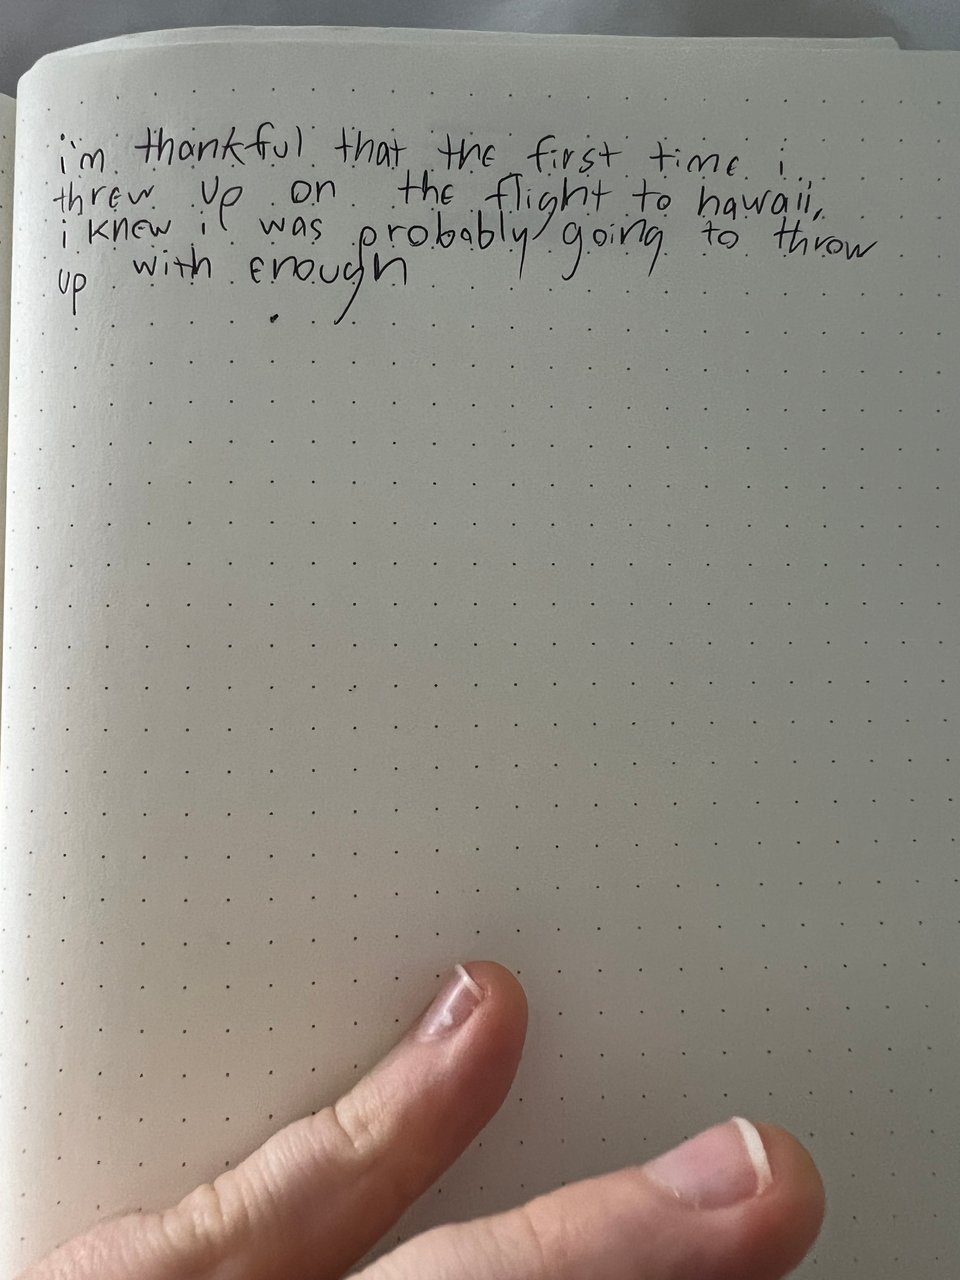 i'm thankful that the first time i
threw up on the flight to hawaii,
i knew i was probably going to throw
up with enough